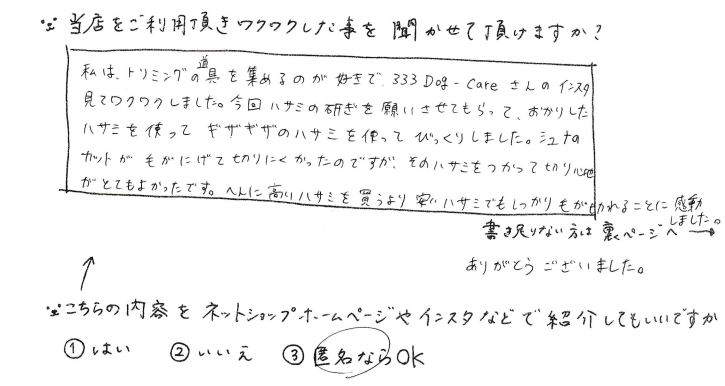 当店をご利用頂きワクワクした事を聞かせて頂けますか?
私は、トリミングの道具を集めるのが好きで、333 Dog-Careさんのインスタ
見てワクワクしました。今回ハサミの研ぎを願いさせてもらって、おかりした
ハサミを使って ギザギザのハサミを使って びっくりしました。シュナの
カットが毛がにげて切りにくかったのですが、そのハサミをつかって切り心地
がとてもよかったです。へんに高いハサミを買うより安いハサミでもしっかり毛がきれることに感動
しました。
書き足りない方は裏ページへ→
ありがとうございました。
こちらの内容をネットショップホームページやインスタなどで紹介してもいいですか
①はい ②いいえ ③匿名ならOK